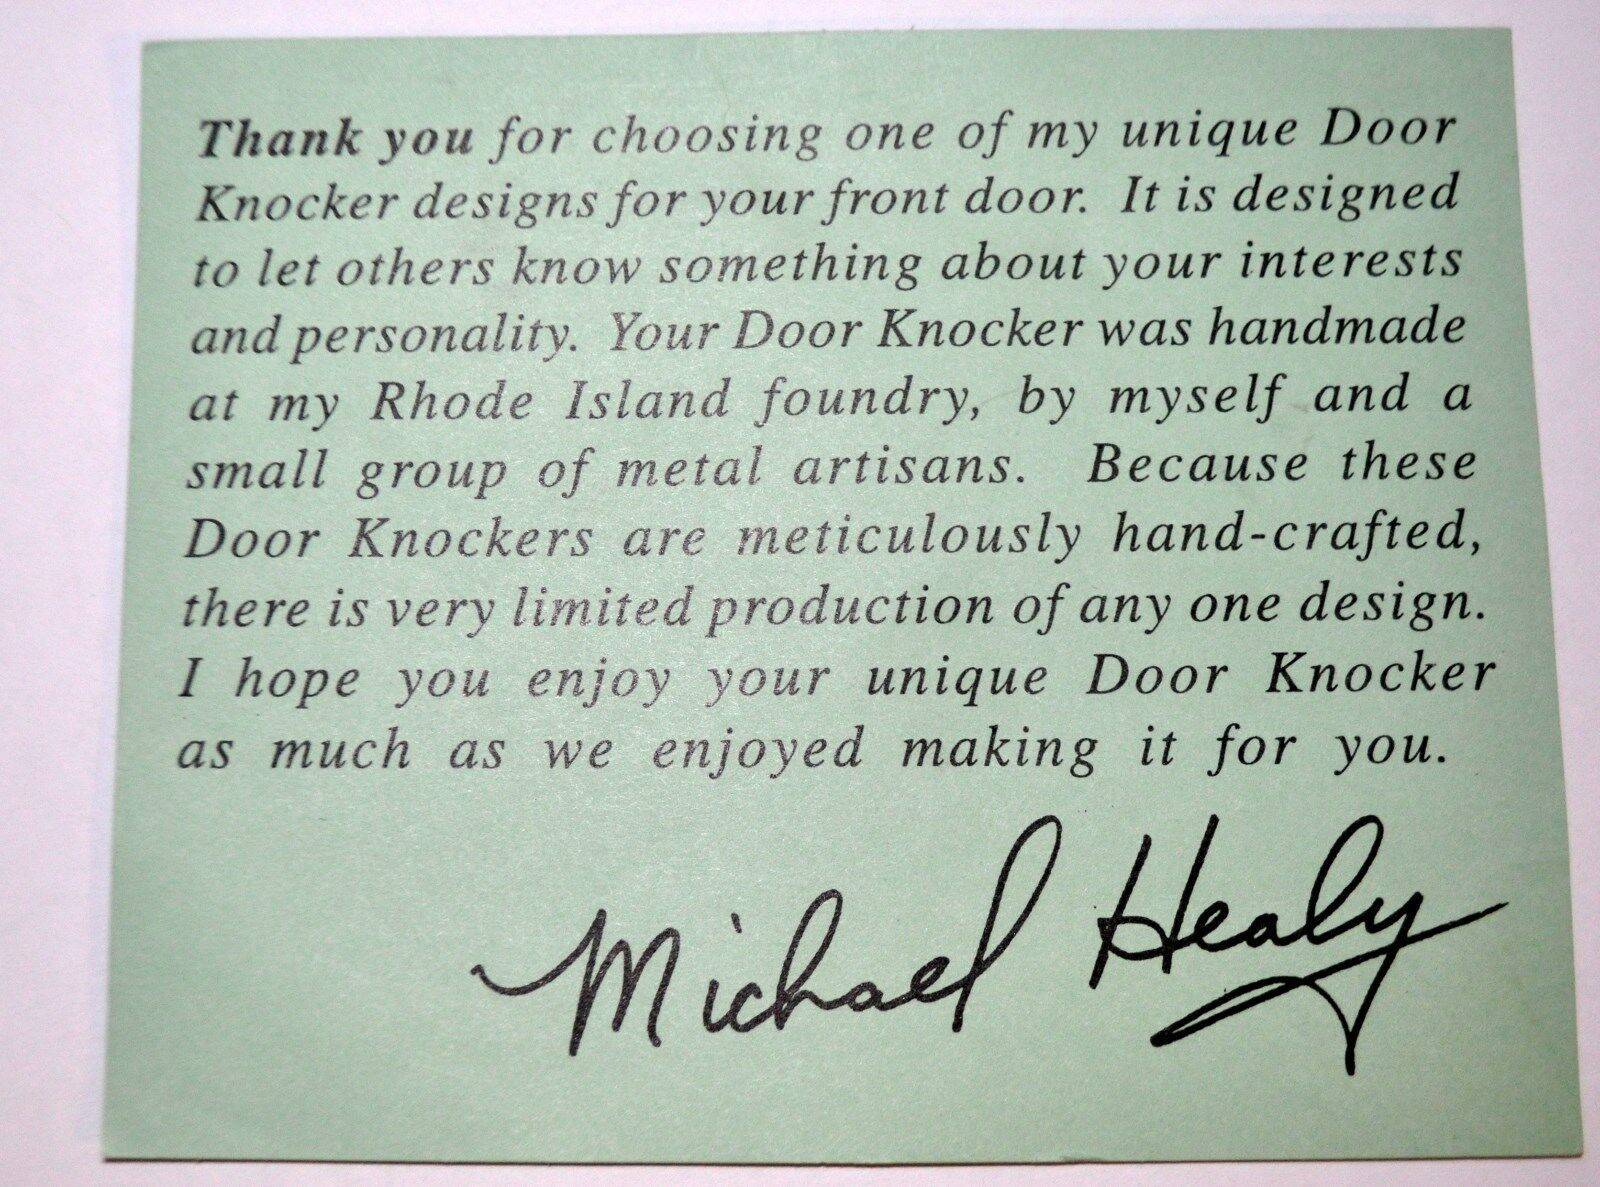 Thank you for choosing one of my unique Door
Knocker designs for your front door. It is designed
to let others know something about your interests
and personality. Your Door Knocker was handmade
at my Rhode Island foundry, by myself and a
small group of metal artisans. Because these
Door Knockers are meticulously hand-crafted,
there is very limited production of any one design.
I hope you enjoy your unique Door Knocker
as much as we enjoyed making it for you.
Michael Healy